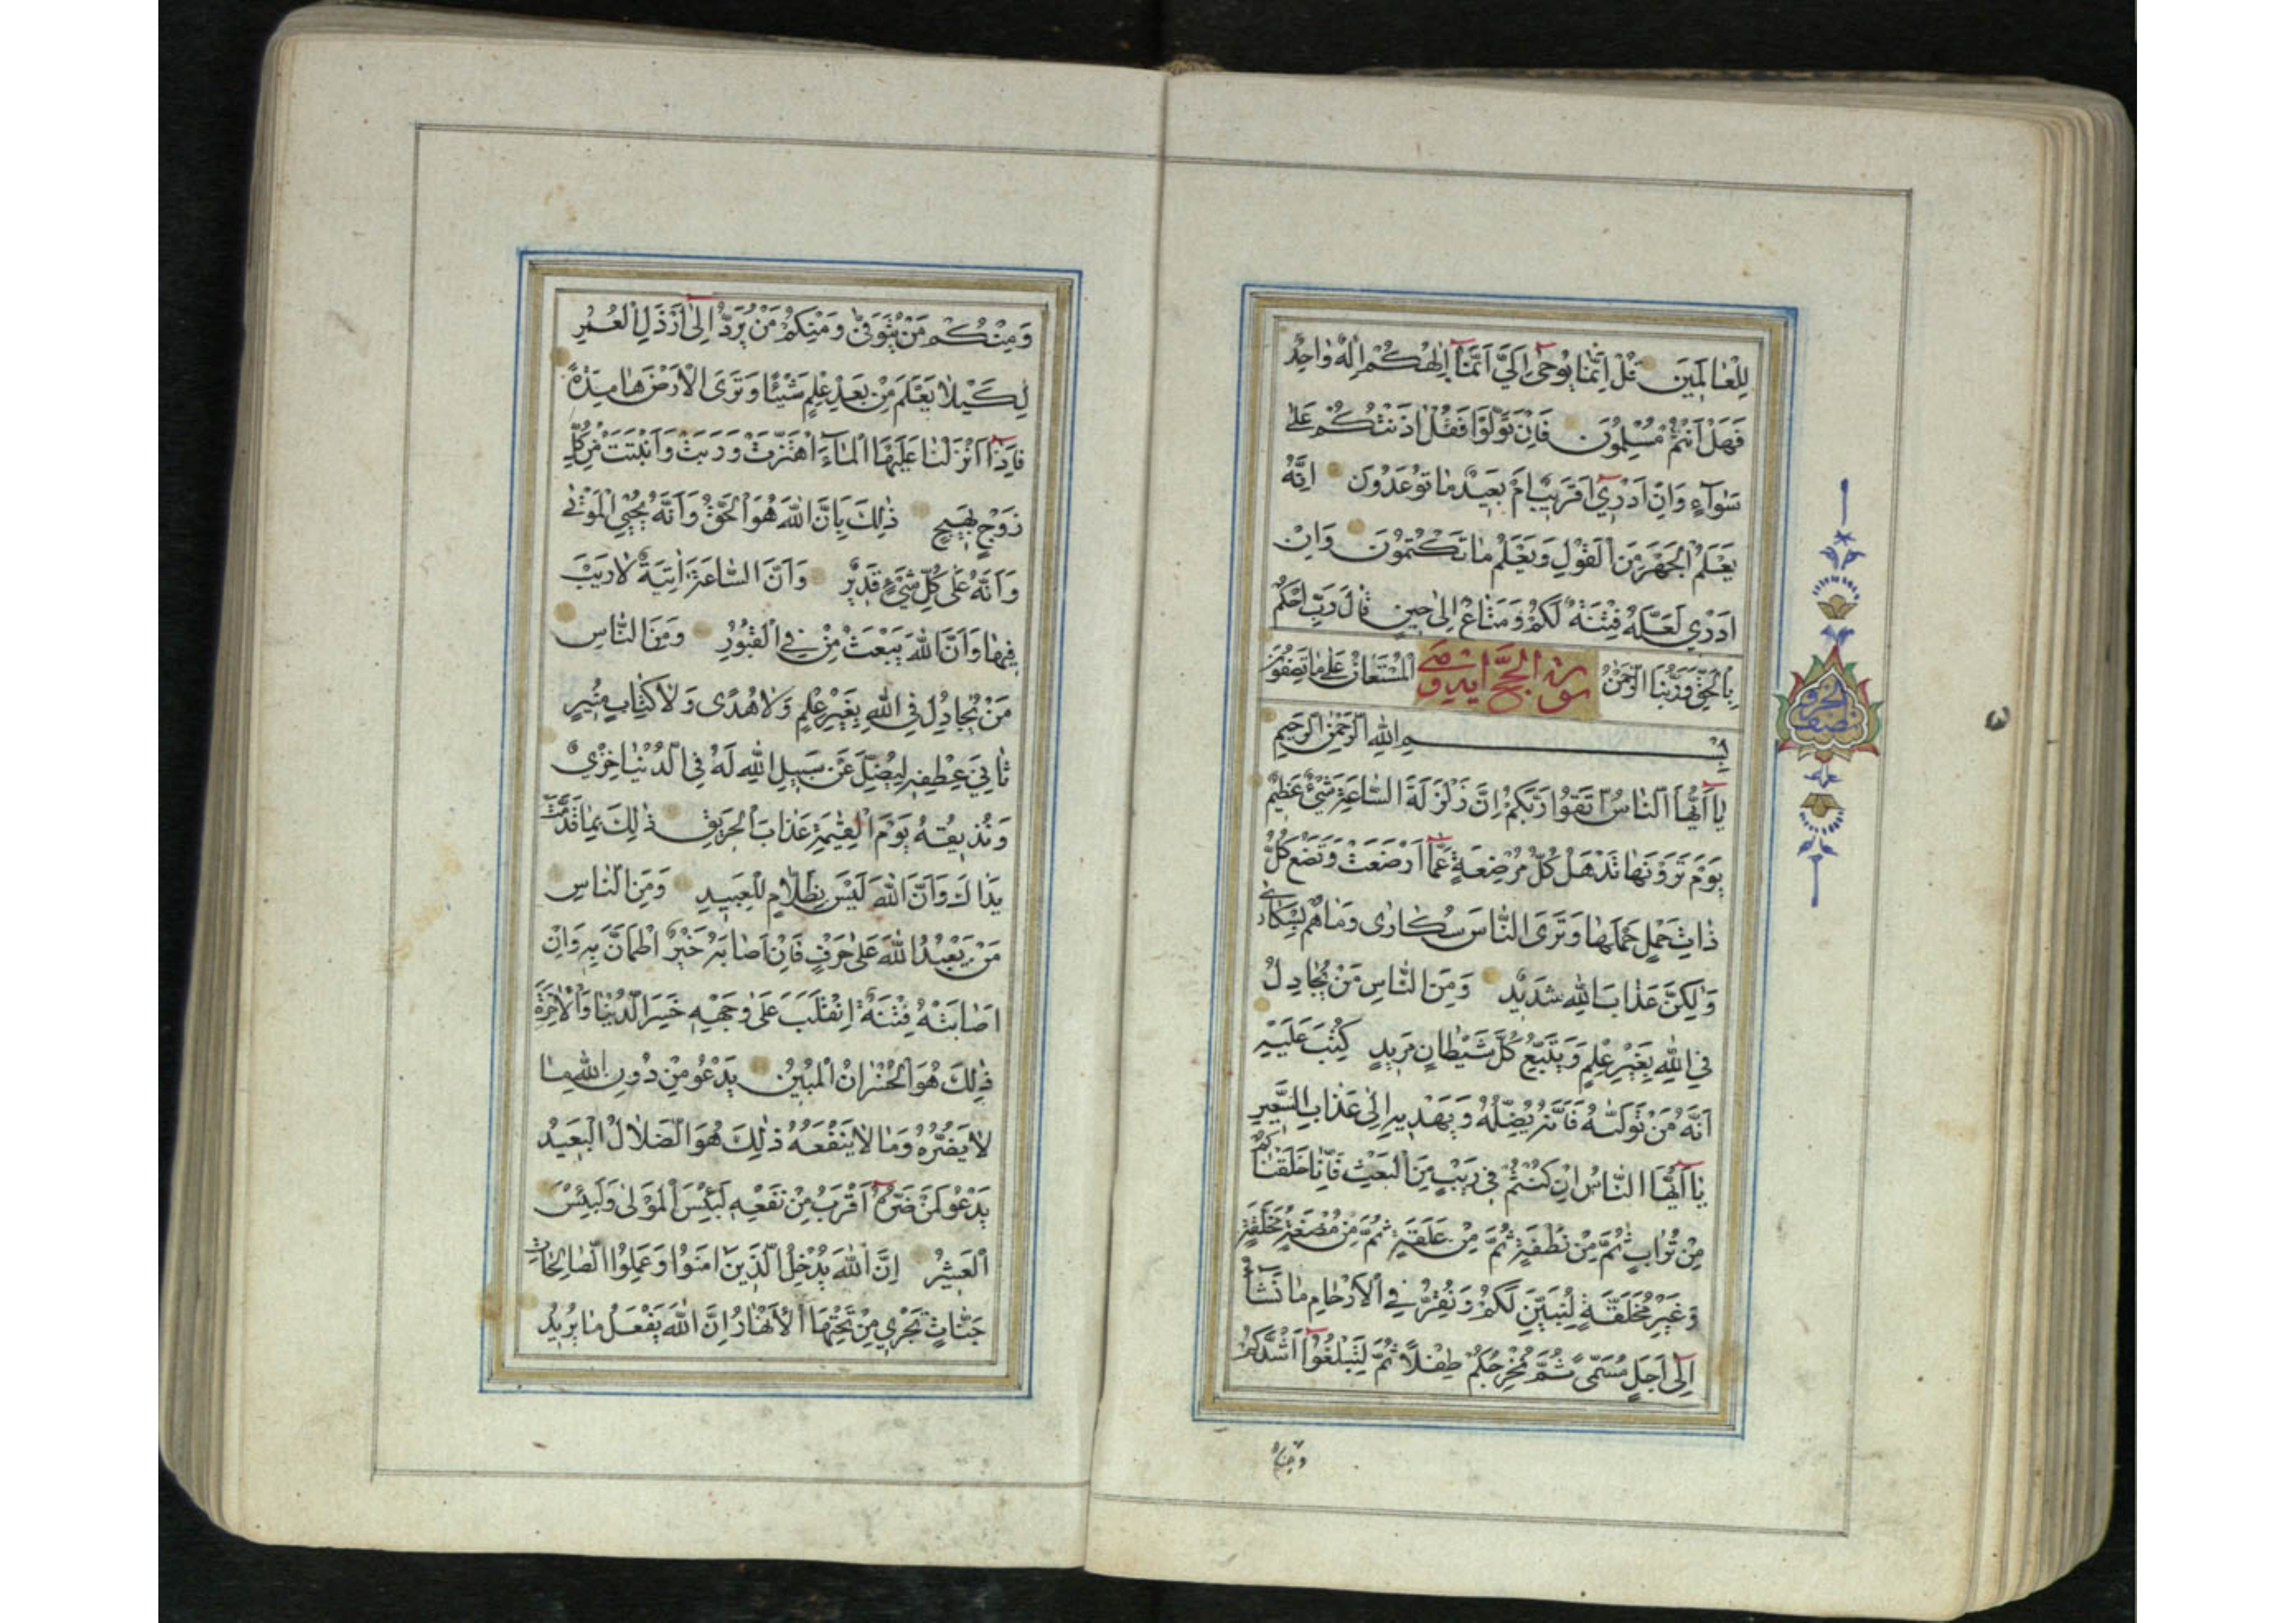 لِلْعٰالَمٖينَ قُلْ اِنَّمٰا يُوحٰى اِلَيَّ اَنَّمٰا اِلٰهُكُمْ اِلٰهٌ وٰاحِدٌ
فَهَلْ اَنْتُمْ مُسْلِمُونَ فَاِنْ تَوَلَّوْا فَقُلْ اٰذَنْتُكُمْ عَلٰى
سَوٰٓاءٍ وَاِنْ اَدْرٖي اَقَرٖيبٌ اَمْ بَعٖيدٌ مٰا تُوعَدُونَ اِنَّهُ
يَعْلَمُ الْجَهْرَ مِنَ الْقَوْلِ وَيَعْلَمُ مٰا تَكْتُمُونَ وَاِنْ
اَدْرٖي لَعَلَّهُ فِتْنَةٌ لَكُمْ وَمَتٰاعٌ اِلٰى حٖينٍ قٰالَ رَبِّ احْكُمْ
بِالْحَقِّ وَرَبُّنَا الرَّحْمٰنُ الْمُسْتَعٰانُ عَلٰى مٰا تَصِفُونَ
سورة الحج
بِسْمِ اللّٰهِ الرَّحْمٰنِ الرَّحٖيمِ
يٰٓا اَيُّهَا النّٰاسُ اتَّقُوا رَبَّكُمْ اِنَّ زَلْزَلَةَ السّٰاعَةِ شَيْءٌ عَظٖيمٌ
يَوْمَ تَرَوْنَهٰا تَذْهَلُ كُلُّ مُرْضِعَةٍ عَمّٰٓا اَرْضَعَتْ وَتَضَعُ كُلُّ
ذٰاتِ حَمْلٍ حَمْلَهٰا وَتَرَى النّٰاسَ سُكٰارٰى وَمٰا هُمْ بِسُكٰارٰى
وَلٰكِنَّ عَذٰابَ اللّٰهِ شَدٖيدٌ وَمِنَ النّٰاسِ مَنْ يُجٰادِلُ
فِي اللّٰهِ بِغَيْرِ عِلْمٍ وَيَتَّبِعُ كُلَّ شَيْطٰانٍ مَرٖيدٍ كُتِبَ عَلَيْهِ
اَنَّهُ مَنْ تَوَلّٰاهُ فَاَنَّهُ يُضِلُّهُ وَيَهْدٖيهِ اِلٰى عَذٰابِ السَّعٖيرِ
يٰٓا اَيُّهَا النّٰاسُ اِنْ كُنْتُمْ فٖي رَيْبٍ مِنَ الْبَعْثِ فَاِنّٰا خَلَقْنٰاكُمْ
مِنْ تُرٰابٍ ثُمَّ مِنْ نُطْفَةٍ ثُمَّ مِنْ عَلَقَةٍ ثُمَّ مِنْ مُضْغَةٍ مُخَلَّقَةٍ
وَغَيْرِ مُخَلَّقَةٍ لِنُبَيِّنَ لَكُمْ وَنُقِرُّ فِي الْاَرْحٰامِ مٰا نَشٰٓاءُ
اِلٰٓى اَجَلٍ مُسَمًّى ثُمَّ نُخْرِجُكُمْ طِفْلًا ثُمَّ لِتَبْلُغُوٓا اَشُدَّكُمْ
ومنكم
نصف الحزب
وَمِنْكُمْ مَنْ يُتَوَفّٰى وَمِنْكُمْ مَنْ يُرَدُّ اِلٰٓى اَرْذَلِ الْعُمُرِ
لِكَيْلٰا يَعْلَمَ مِنْ بَعْدِ عِلْمٍ شَيْئًا وَتَرَى الْاَرْضَ هٰامِدَةً
فَاِذٰٓا اَنْزَلْنٰا عَلَيْهَا الْمٰٓاءَ اهْتَزَّتْ وَرَبَتْ وَاَنْبَتَتْ مِنْ كُلِّ
زَوْجٍ بَهٖيجٍ ذٰلِكَ بِاَنَّ اللّٰهَ هُوَ الْحَقُّ وَاَنَّهُ يُحْيِي الْمَوْتٰى
وَاَنَّهُ عَلٰى كُلِّ شَيْءٍ قَدٖيرٌ وَاَنَّ السّٰاعَةَ اٰتِيَةٌ لٰا رَيْبَ
فٖيهٰا وَاَنَّ اللّٰهَ يَبْعَثُ مَنْ فِي الْقُبُورِ وَمِنَ النّٰاسِ
مَنْ يُجٰادِلُ فِي اللّٰهِ بِغَيْرِ عِلْمٍ وَلٰا هُدًى وَلٰا كِتٰابٍ مُنٖيرٍ
ثٰانِيَ عِطْفِهٖ لِيُضِلَّ عَنْ سَبٖيلِ اللّٰهِ لَهُ فِي الدُّنْيٰا خِزْيٌ
وَنُذٖيقُهُ يَوْمَ الْقِيٰمَةِ عَذٰابَ الْحَرٖيقِ ذٰلِكَ بِمٰا قَدَّمَتْ
يَدٰاكَ وَاَنَّ اللّٰهَ لَيْسَ بِظَلّٰامٍ لِلْعَبٖيدِ وَمِنَ النّٰاسِ
مَنْ يَعْبُدُ اللّٰهَ عَلٰى حَرْفٍ فَاِنْ اَصٰابَهُ خَيْرٌ اطْمَاَنَّ بِهٖ وَاِنْ
اَصٰابَتْهُ فِتْنَةٌ انْقَلَبَ عَلٰى وَجْهِهٖ خَسِرَ الدُّنْيٰا وَالْاٰخِرَةَ
ذٰلِكَ هُوَ الْخُسْرٰانُ الْمُبٖينُ يَدْعُو مِنْ دُونِ اللّٰهِ مٰا
لٰا يَضُرُّهُ وَمٰا لٰا يَنْفَعُهُ ذٰلِكَ هُوَ الضَّلٰالُ الْبَعٖيدُ
يَدْعُو لَمَنْ ضَرُّهُ اَقْرَبُ مِنْ نَفْعِهٖ لَبِئْسَ الْمَوْلٰى وَلَبِئْسَ
الْعَشٖيرُ اِنَّ اللّٰهَ يُدْخِلُ الَّذٖينَ اٰمَنُوا وَعَمِلُوا الصّٰالِحٰاتِ
جَنّٰاتٍ تَجْرٖي مِنْ تَحْتِهَا الْاَنْهٰارُ اِنَّ اللّٰهَ يَفْعَلُ مٰا يُرٖيدُ